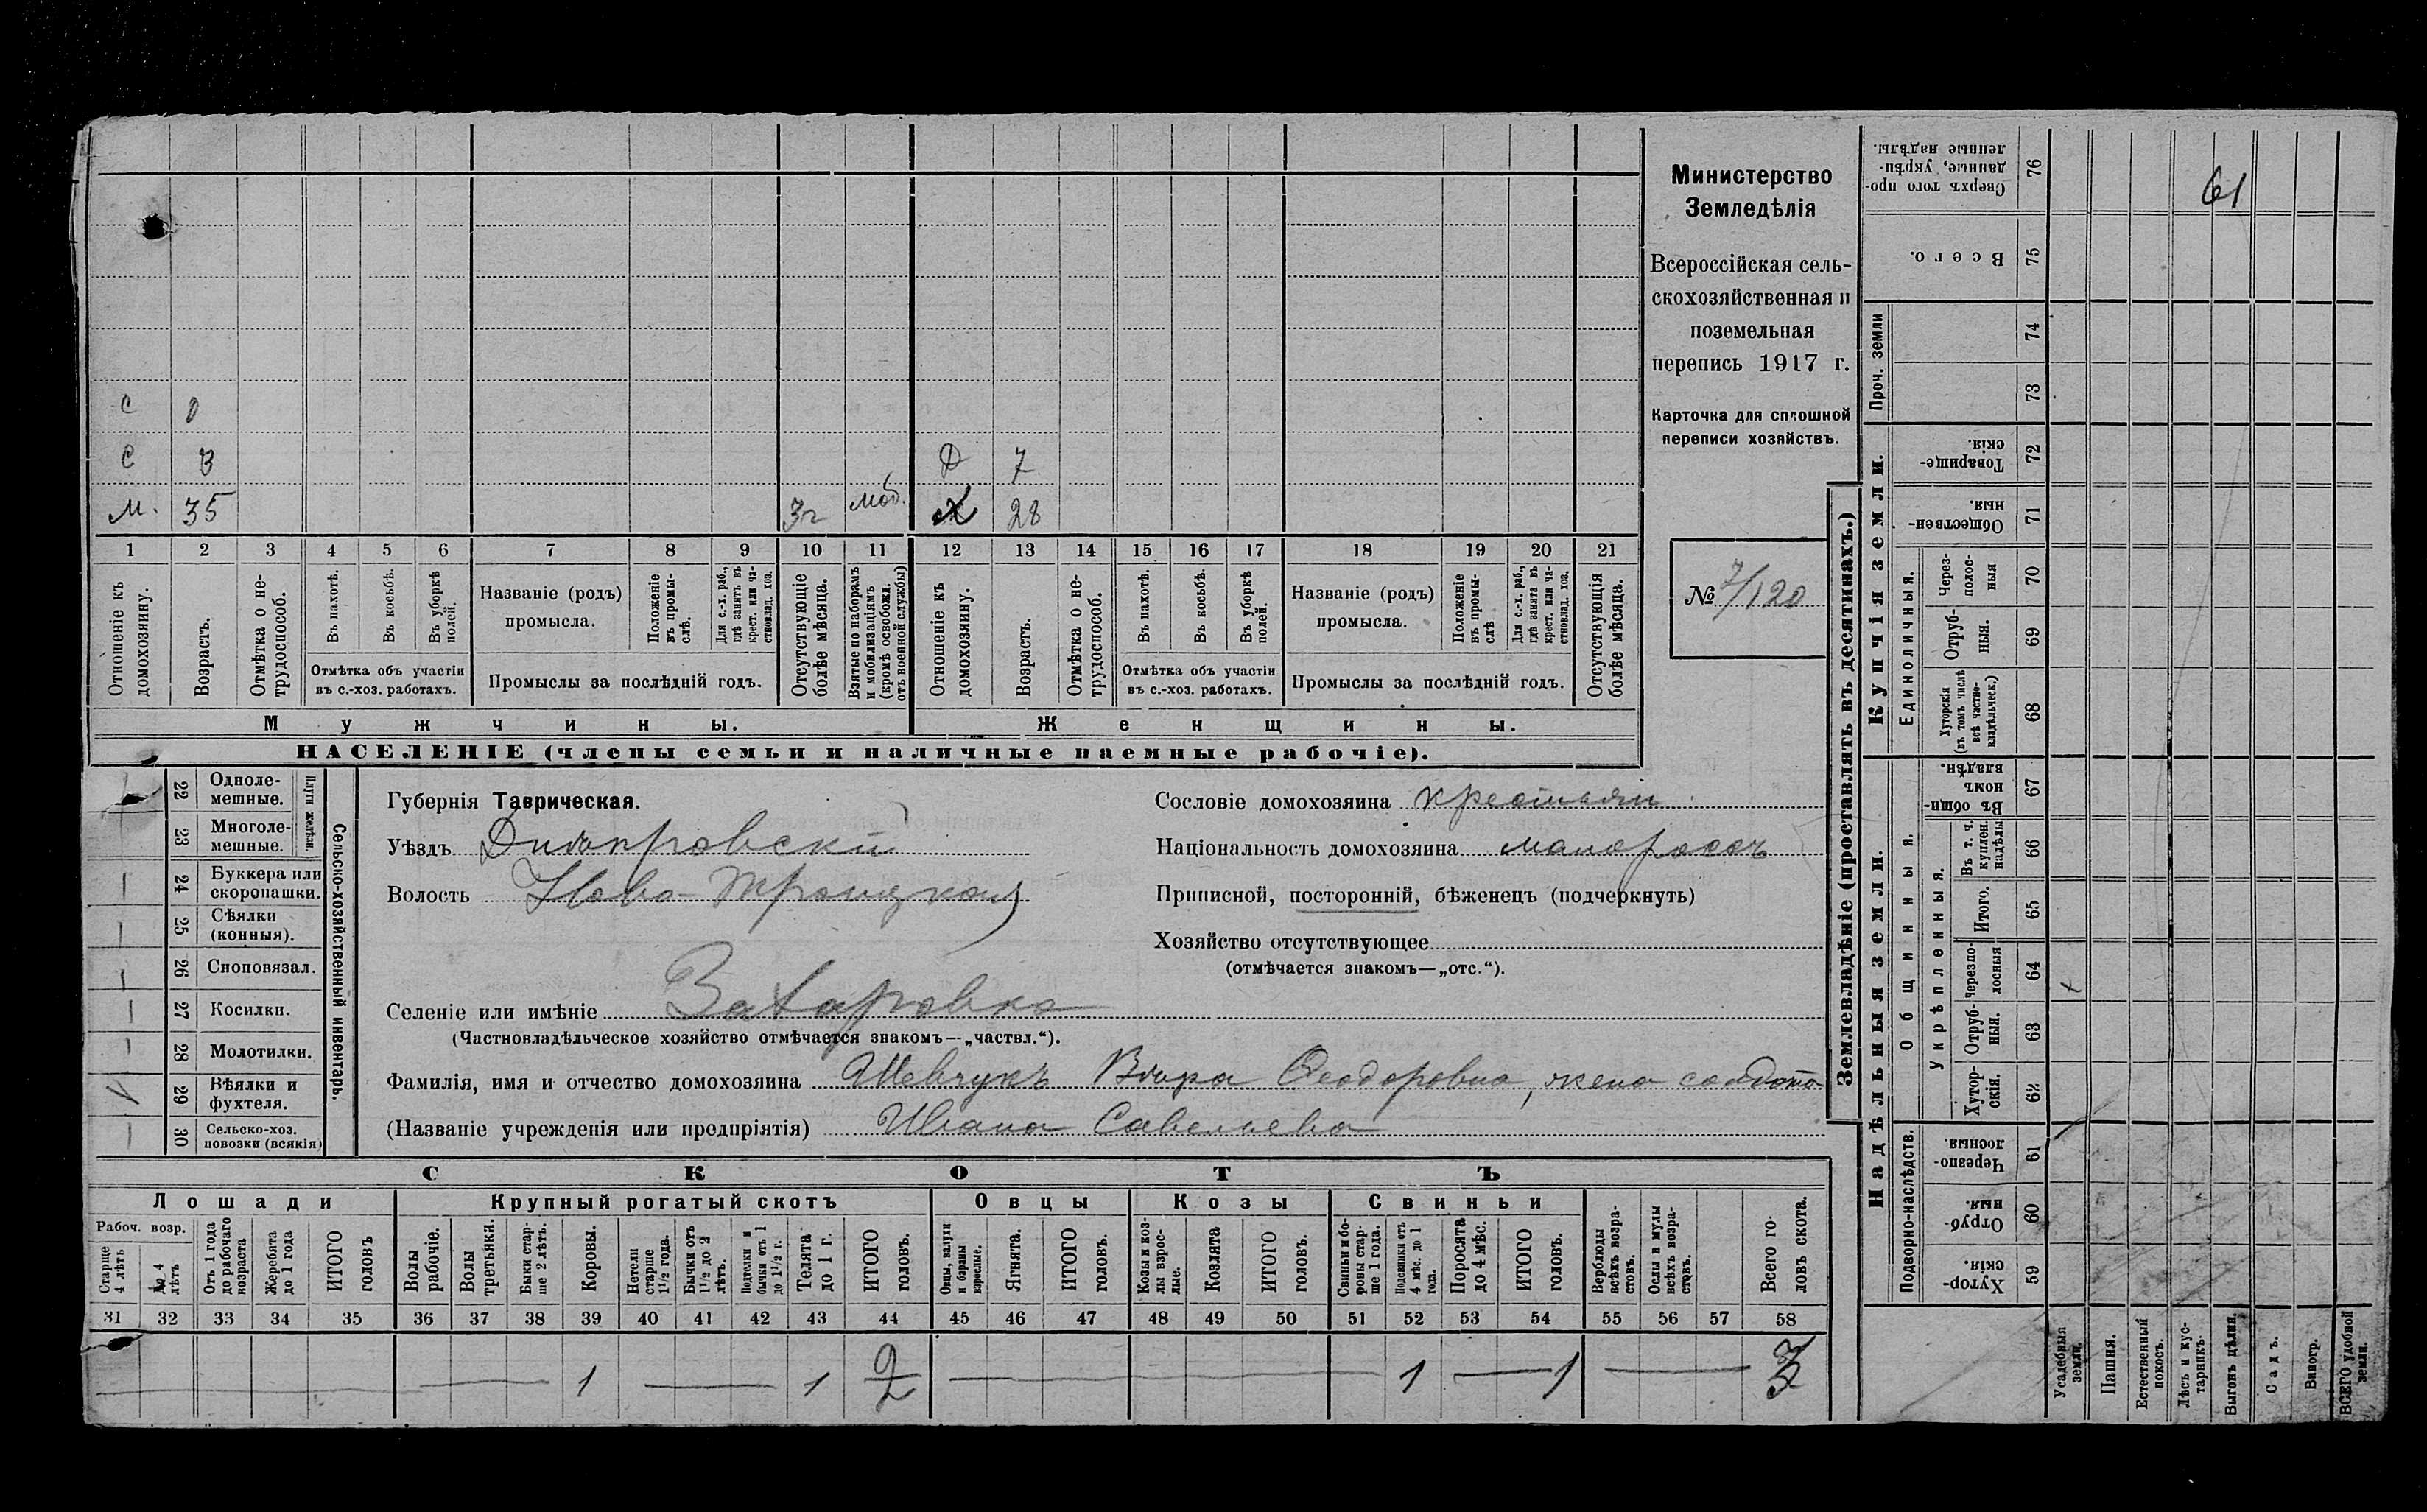 С 0
С 3 Д 7
М. 35 3г моб. Х 28
1 2 3 4 5 6 7 8 9 10 11 12 13 14 15 16 17 18 19 20 21
Отношеніе къ домохозяину.
Возрастъ.
Отмѣтка о нетрудоспособ.
Въ пахотѣ.
Въ косьбѣ.
Въ уборкѣ полей.
Отмѣтка объ участіи
въ с.-хоз. работахъ.
Названіе (родъ)
промысла.
Положеніе въ промыслѣ.
Для с.-х. раб., гдѣ занятъ въ крест. или частновлад. хоз.
Промыслы за послѣдній годъ.
Отсутствующіе болѣе мѣсяца.
Взятые по наборамъ и мобилизаціямъ (кромѣ освобожд. отъ военной службы)
Отношеніе къ домохозяину.
Возрастъ.
Отмѣтка о нетрудоспособ.
Въ пахотѣ.
Въ косьбѣ.
Въ уборкѣ полей.
Отмѣтка объ участіи
въ с.-хоз. работахъ.
Названіе (родъ)
промысла.
Положеніе въ промыслѣ
Для с.-х. раб., гдѣ занята въ крест. или частновлад. хоз.
Промыслы за послѣдній годъ.
Отсутствующія болѣе мѣсяца.
Мужчины.
Женщины.
НАСЕЛЕНІЕ (члены семьи и наличные наемные рабочіе).
Министерство
Земледѣлія
Всероссійская сель-
скохозяйственная и
поземельная
перепись 1917 г.
Карточка для сплошной
переписи хозяйствъ.
№ 7/120
22 Одноле-
мешные.
23 Многоле-
мешные.
Плуги желѣзн.
24 Буккера или
скоропашки.
25 Сѣялки
(конныя).
26 Сноповязал.
27 Косилки.
28 Молотилки.
29 Вѣялки и
фухтеля.
30 Сельско-хоз.
повозки (всякія)
Сельско-хозяйственный инвентарь.
Губернія Таврическая.
Уѣздъ Днѣпровскій
Волость Ново-Троицкая
Селеніе или имѣніе Захаровка
(Частновладѣльческое хозяйство отмѣчается знакомъ—„частвл.“).
Фамилія, имя и отчество домохозяина Шевчукъ Вѣра Феодоровна, жена солдата
(Названіе учрежденія или предпріятія) Ивана Савельева
Сословіе домохозяина крестьян
Національность домохозяина малороссъ
Приписной, посторонній, бѣженецъ (подчеркнуть)
Хозяйство отсутствующее
(отмѣчается знакомъ—„отс.“).
СКОТЪ
Лошади
Крупный рогатый скотъ
Овцы
Козы
Свиньи
Рабоч. возр.
Старше 4 лѣтъ
До 4 лѣтъ
Отъ 1 года до рабочаго возраста
Жеребята до 1 года
ИТОГО головъ
Волы рабочіе.
Волы третьяки.
Быки старше 2 лѣтъ.
Коровы.
Нетели старше 1½ года.
Бычки отъ 1½ до 2 лѣтъ.
Подтелки и бычки отъ 1 до 1½ г.
Телята до 1 г.
ИТОГО головъ.
Овцы, валухи и бараны взрослые.
Ягнята.
ИТОГО головъ.
Козы и козлы взрослые.
Козлята
ИТОГО головъ.
Свиньи и боровы старше 1 года.
Подсвинки отъ 4 мѣс. до 1 года.
Поросята до 4 мѣс.
ИТОГО головъ.
Верблюды всѣхъ возрастовъ.
Ослы и мулы всѣхъ возрастовъ.
Всего головъ скота.
31 32 33 34 35 36 37 38 39 40 41 42 43 44 45 46 47 48 49 50 51 52 53 54 55 56 57 58
1 1 2 1 1 3
Землевладѣніе (проставлять въ десятинахъ.)
Надѣльныя земли.
Купчія земли.
Проч. земли
Сверхъ того проданные, укрѣпленные надѣлы. 76
Всего. 75
74
73
Товарищескія. 72
Общественныя. 71
Единоличныя.
Черезполосныя 70
Отрубныя. 69
Хуторскія (въ томъ числѣ всѣ частновладѣльческ.) 68
Общинныя.
Въ общиномъ владѣн. 67
Укрѣпленныя.
Въ т. ч. куплен. надѣлы 66
Итого. 65
Черезполосныя 64
Отрубныя. 63
Хуторскія. 62
Подворно-наслѣдств.
Черезполосныя. 61
Отрубныя. 60
Хуторскія. 59
Усадебныя земли.
Пашня.
Естественный покосъ.
Лѣсъ и кустарникъ.
Выгонъ дѣлин.
Садъ.
Виногр.
ВСЕГО удобной земли.
61